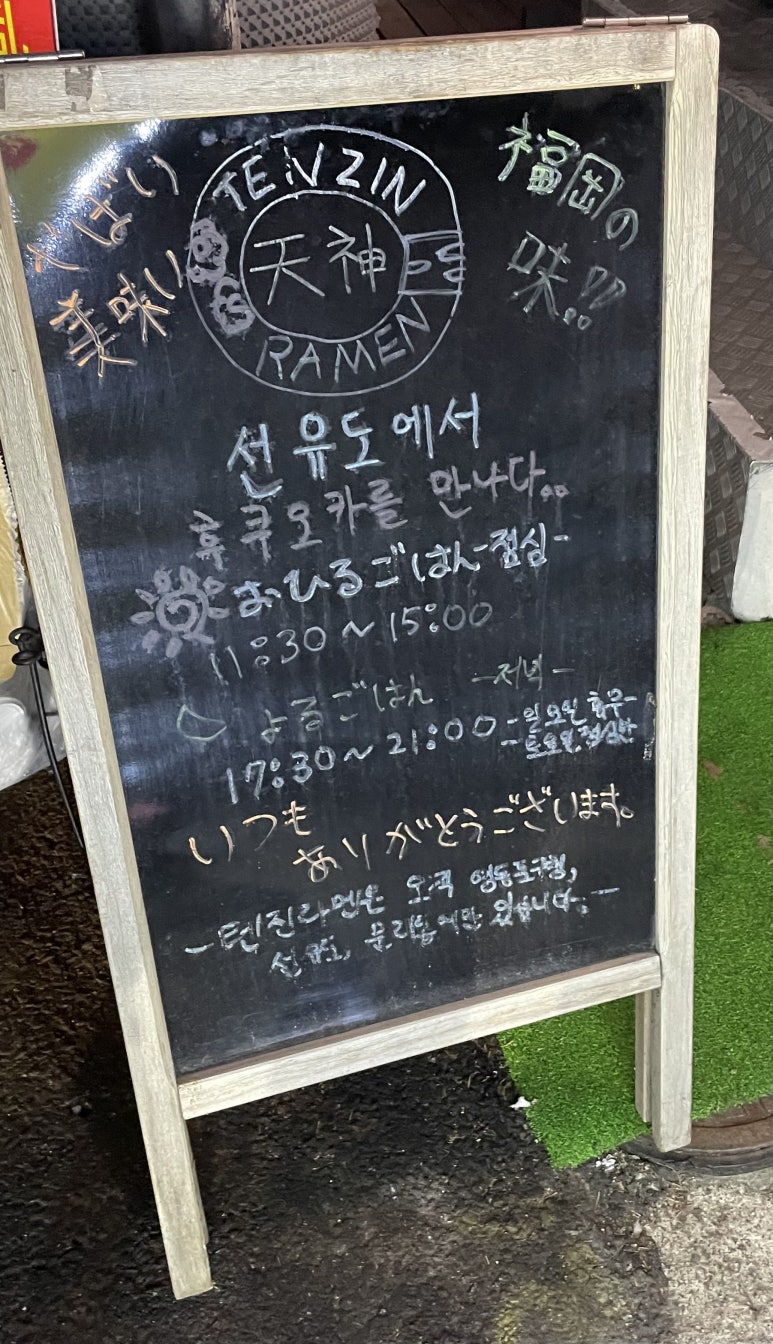 やばい
美味い
TENZIN
天神
RAMEN
福岡の
味!!
선유도에서
후쿠오카를 만나다..
おひるごはん -점심-
11:30~15:00
よるごはん -저녁-
17:30~21:00
-일요일 휴무-
-토요일 점심만
いつも
ありがとうございます。
-텐진라멘은 오직 영등포구청,
선유도, 문래점에만 있습니다.-